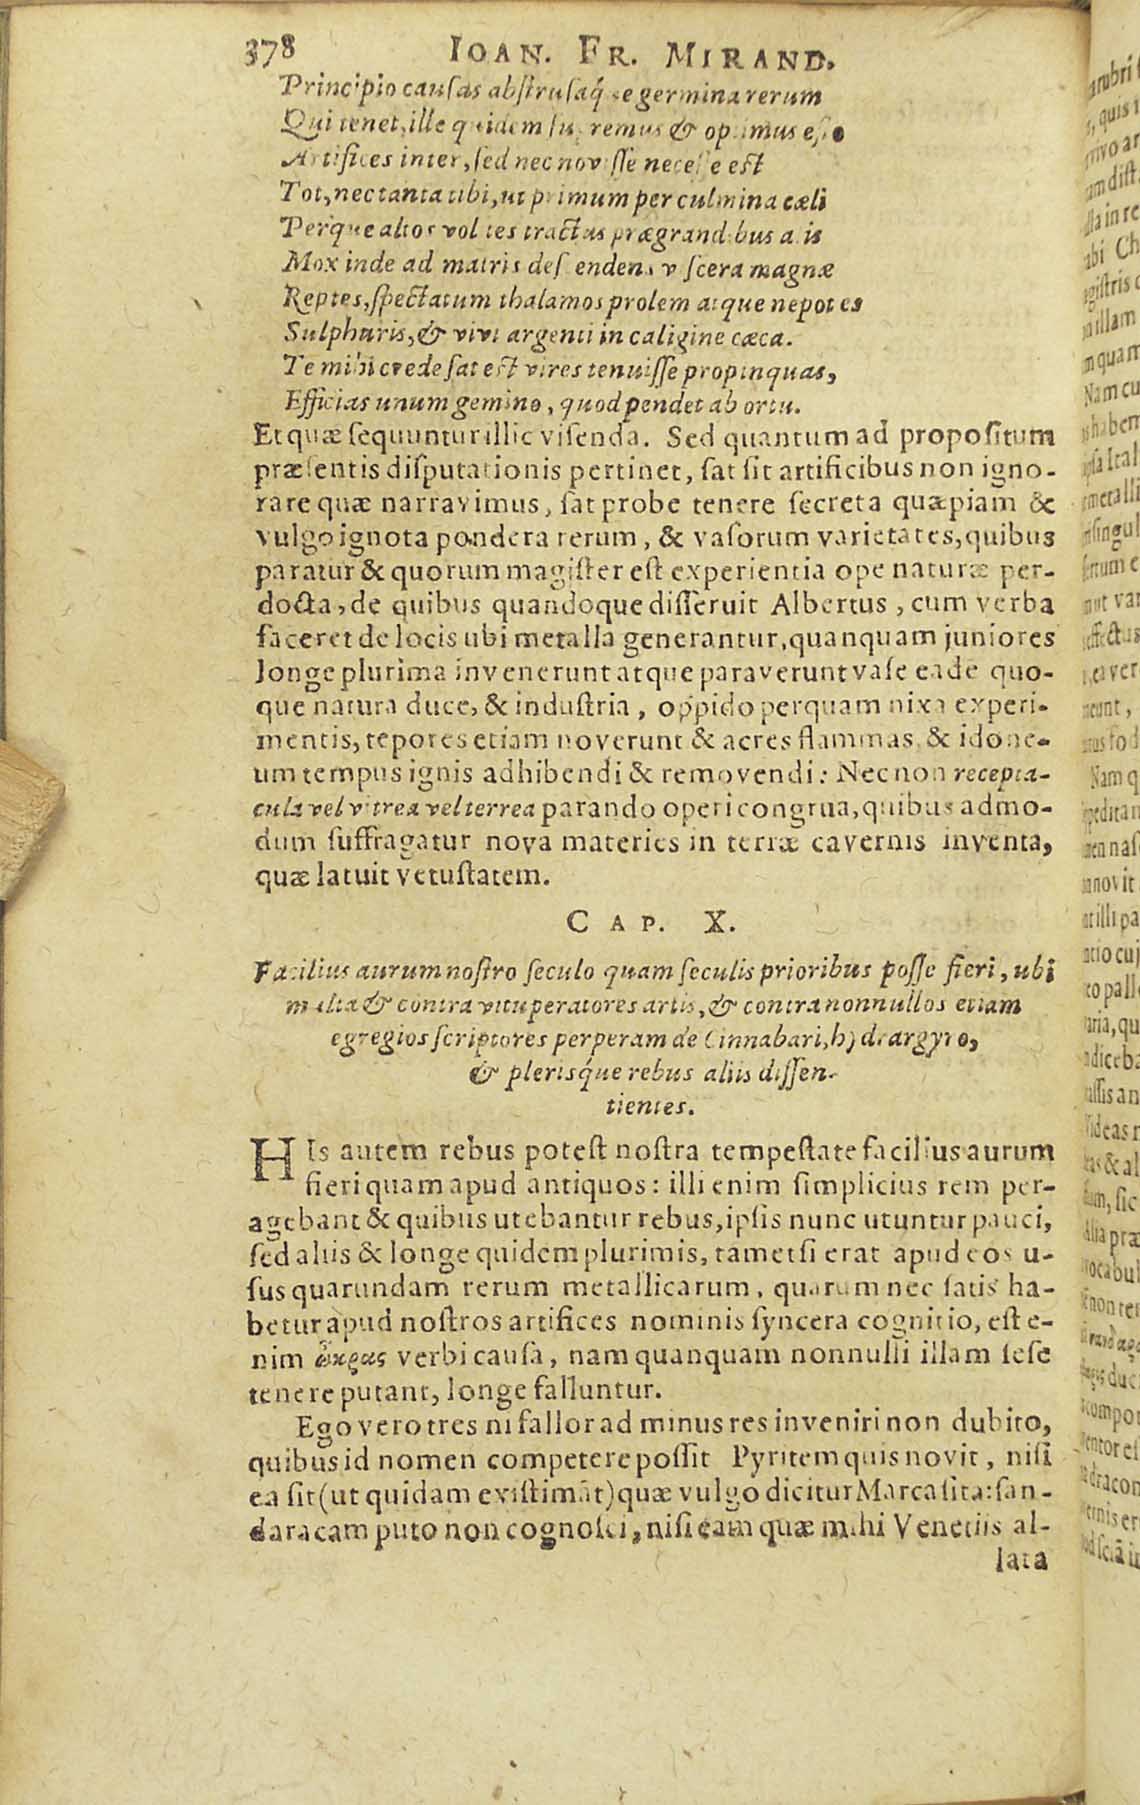 378 IOAN. FR. MIRAND.
Principio causas abstrusaq́ue germina rerum
Qui tenet, ille quidem supremus & optimus esto
Artifices inter, sed nec novisse necesse est
Tot, nec tanta tibi, ut primum per culmina cæli
Perque altos volites tractus prægrandibus alis
Mox inde ad matris descendens viscera magnæ
Reptes, spectatum thalamos prolem atque nepotes
Sulphuris, & vivi argenti in caligine cæca.
Te mihi crede sat est vires tenuisse propinquas,
Efficias unum gemino, quod pendet ab ortu.
Et quæ sequuntur illic visenda. Sed quantum ad propositum
præsentis disputationis pertinet, sat sit artificibus non igno-
rare quæ narravimus, sat probe tenere secreta quæpiam &
vulgo ignota pondera rerum, & vasorum varietates, quibus
paratur & quorum magister est experientia ope naturæ per-
docta, de quibus quandoque disseruit Albertus, cum verba
faceret de locis ubi metalla generantur, quanquam juniores
longe plurima invenerunt atque paraverunt vase eade quo-
que natura duce, & industria, oppido perquam nixa experi-
mentis, tepores etiam noverunt & acres flammas & idone-
um tempus ignis adhibendi & removendi: Nec non recepta-
cula vel vitrea vel terrea parando operi congrua, quibus admo-
dum suffragatur nova materies in terræ cavernis inventa,
quæ latuit vetustatem.
CAP. X.
Facilius aurum nostro seculo quam seculis prioribus posse fieri, ubi
multa & contra vituperatores artis, & contra nonnullos etiam
egregios scriptores perperam de Cinnabari, hydrargyro,
& plerisq́ue rebus aliis dissen-
tientes.
HIs autem rebus potest nostra tempestate facilius aurum
fieri quam apud antiquos: illi enim simplicius rem per-
agebant & quibus utebantur rebus, ipsis nunc utuntur pauci,
sed aliis & longe quidem plurimis, tametsi erat apud eos u-
sus quarundam rerum metallicarum, quarum nec satis ha-
betur apud nostros artifices nominis syncera cognitio, est e-
nim ὤχρας verbi causa, nam quanquam nonnulli illam sese
tenere putant, longe falluntur.
Ego vero tres ni fallor ad minus res inveniri non dubito,
quibus id nomen competere possit Pyritem quis novit, nisi
ea sit (ut quidam existimāt) quæ vulgo dicitur Marcasita: san-
daracam puto non cognosci, nisi eam quæ mihi Venetiis al-
lata